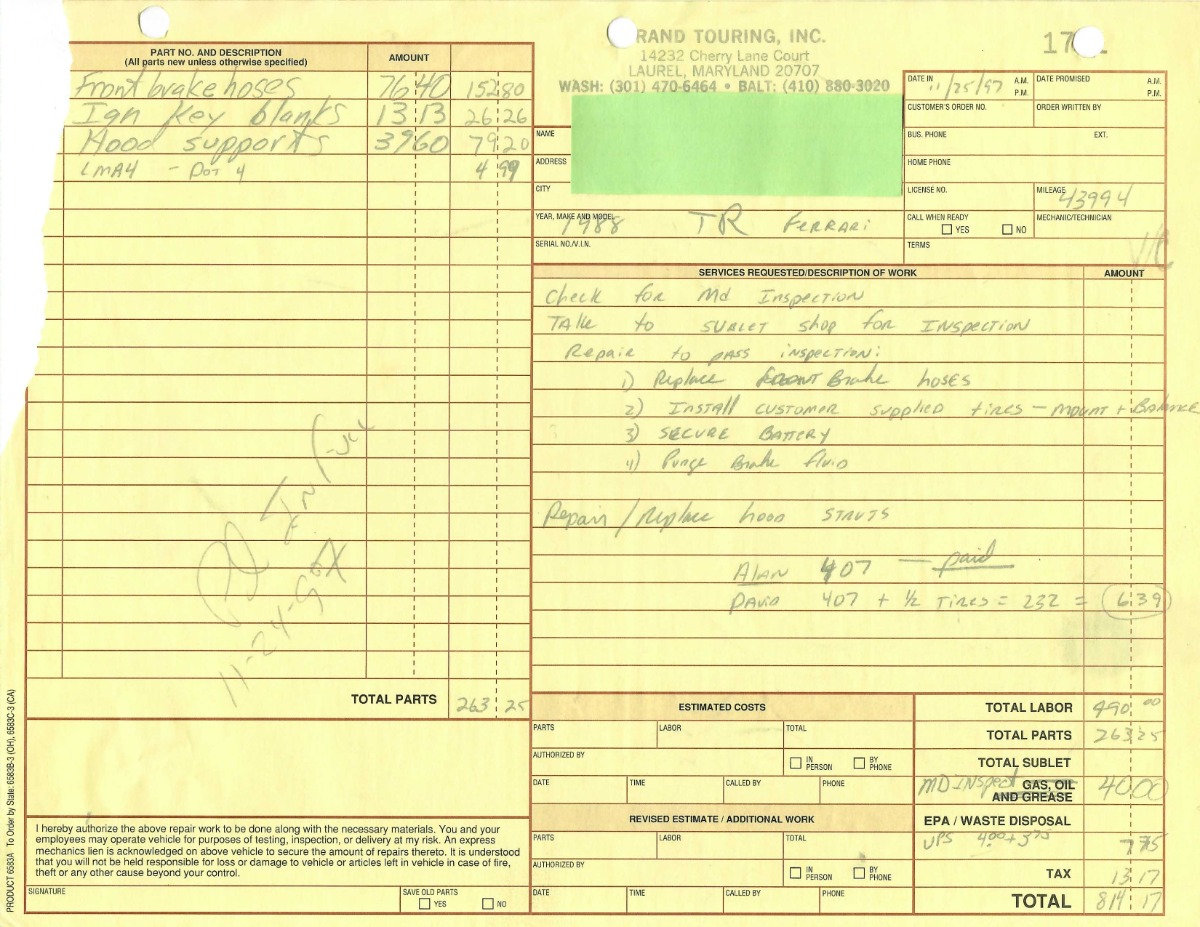 RAND TOURING, INC.
14232 Cherry Lane Court
LAUREL, MARYLAND 20707
WASH: (301) 470-6464 • BALT: (410) 880-3020
17
PART NO. AND DESCRIPTION
(All parts new unless otherwise specified)
AMOUNT
Front brake hoses 76 40 152 80
Ign Key blanks 13 13 26 26
Hood supports 39 60 79 20
LMA4 - DOT 4 4 99
TOTAL PARTS 263 25
DATE IN 11/25/97 A.M. P.M.
DATE PROMISED A.M. P.M.
CUSTOMER'S ORDER NO.
ORDER WRITTEN BY
NAME
BUS. PHONE EXT.
ADDRESS
HOME PHONE
CITY
LICENSE NO.
MILEAGE 43994
YEAR, MAKE AND MODEL 1988 TR FERRARI
CALL WHEN READY
YES NO
MECHANIC/TECHNICIAN
SERIAL NO./V.I.N.
TERMS
SERVICES REQUESTED/DESCRIPTION OF WORK AMOUNT
Check for Md Inspection
TAKE to SUBLET shop for INSPECTION
Repair to pass inspection:
1) Replace FRONT Brake hoses
2) INSTALL CUSTOMER supplied tires - MOUNT + BALANCE
3) SECURE BATTERY
4) Purge Brake fluid
Repair/Replace hood STRUTS
ALAN 407 — paid
DAVID 407 + ½ TIRES = 232 = 639
ESTIMATED COSTS
PARTS LABOR TOTAL
AUTHORIZED BY
IN PERSON BY PHONE
DATE TIME CALLED BY PHONE
REVISED ESTIMATE / ADDITIONAL WORK
PARTS LABOR TOTAL
AUTHORIZED BY
IN PERSON BY PHONE
DATE TIME CALLED BY PHONE
TOTAL LABOR 490 00
TOTAL PARTS 263 25
TOTAL SUBLET
MD INSPECT GAS, OIL AND GREASE 40 00
EPA / WASTE DISPOSAL
UPS 4.00 + 3.75 7 75
TAX 13 17
TOTAL 814 17
I hereby authorize the above repair work to be done along with the necessary materials. You and your
employees may operate vehicle for purposes of testing, inspection, or delivery at my risk. An express
mechanics lien is acknowledged on above vehicle to secure the amount of repairs thereto. It is understood
that you will not be held responsible for loss or damage to vehicle or articles left in vehicle in case of fire,
theft or any other cause beyond your control.
SIGNATURE
SAVE OLD PARTS
YES NO
PRODUCT 6583A To Order by State: 6583B-3 (OH), 6583C-3 (CA)